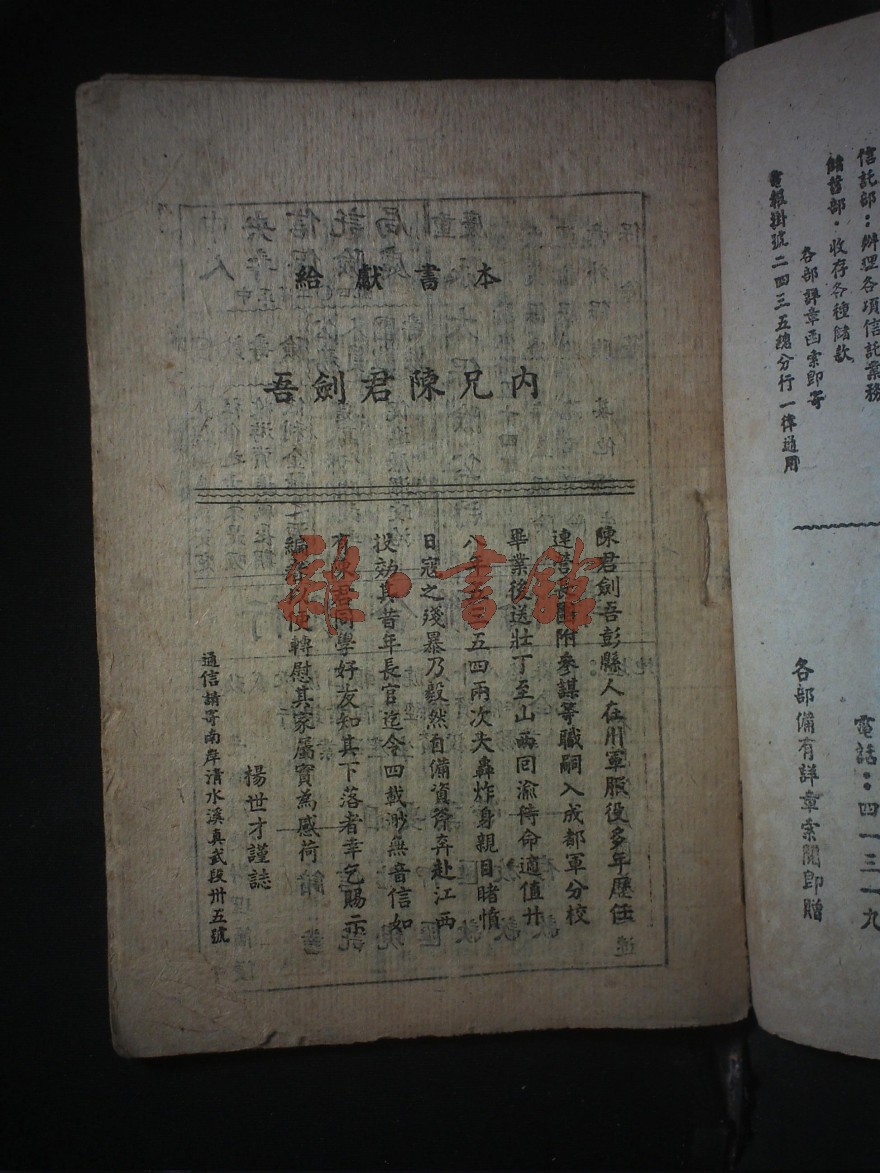 本書獻給
內兄陳君劍吾
陳君劍吾彭縣人在川軍服役多年歷任
連營長團附參謀等職嗣入成都軍分校
畢業後送壯丁至山西回渝待命適值廿
八年五三五四兩次大轟炸身親目睹憤
日寇之殘暴乃毅然自備資斧奔赴江西
投効其昔年長官迄今四載渺無音信如
有陳君同學好友知其下落者幸乞賜示
編者俾便轉慰其家屬實為感荷
楊世才謹誌
通信請寄南岸清水溪真武段卅五號
信託部：辦理各項信託業務
儲蓄部：收存各種儲款
各部詳章函索即寄
電報掛號二四三五總分行一律通用
電話：四一三一九
各部備有詳章索閱即贈
雜·書館